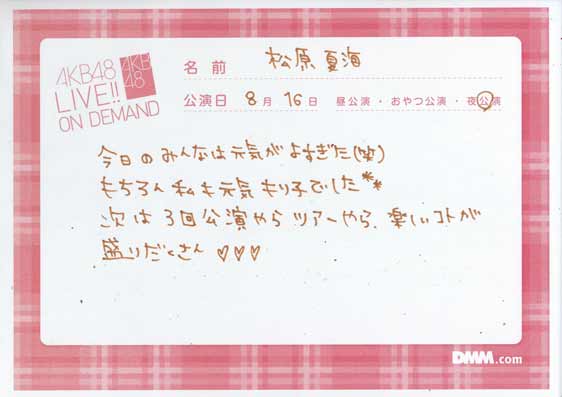 AKB48
LIVE!!
ON DEMAND
AKB
48
名前 松原夏海
公演日 8月 16日 昼公演・おやつ公演・夜公演
今日のみんなは元気がよすぎた(笑)
もちろん私も元気もり子でした**
次は3回公演やらツアーやら、楽しいコトが
盛りだくさん ♡♡♡
DMM.com